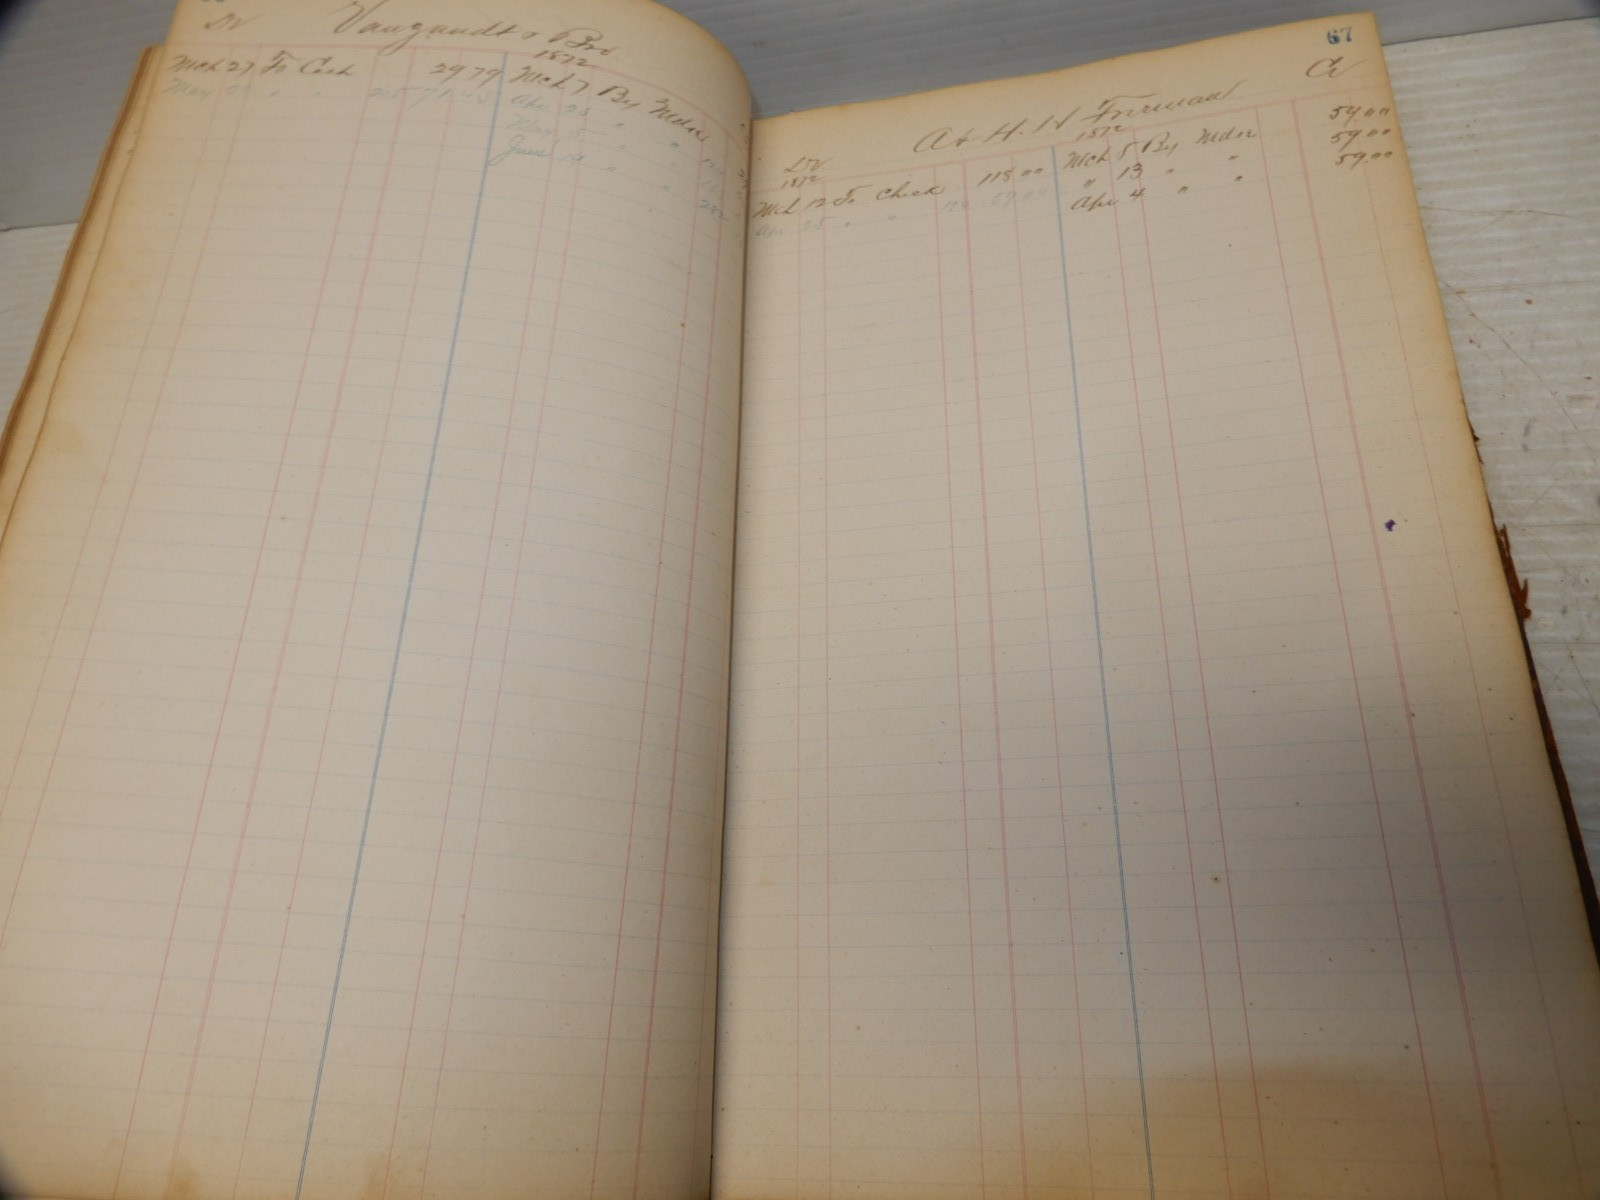 Dr Vangundt & Bro
1872
Mch 27 To Cash 29 79 Mch 7 By Mdse
May 29 " " 25 71.45 Apr 25 " "
May 5 " "
June 19 " " 282
67
A & H. H. Cr
Dr 1872
1872
Mch 12 To Check 118 00 Mch 5 By Mdse 59.00
Apr 25 " " 124 59.00 " 13 " " 59.00
Apr 4 " " 59.00